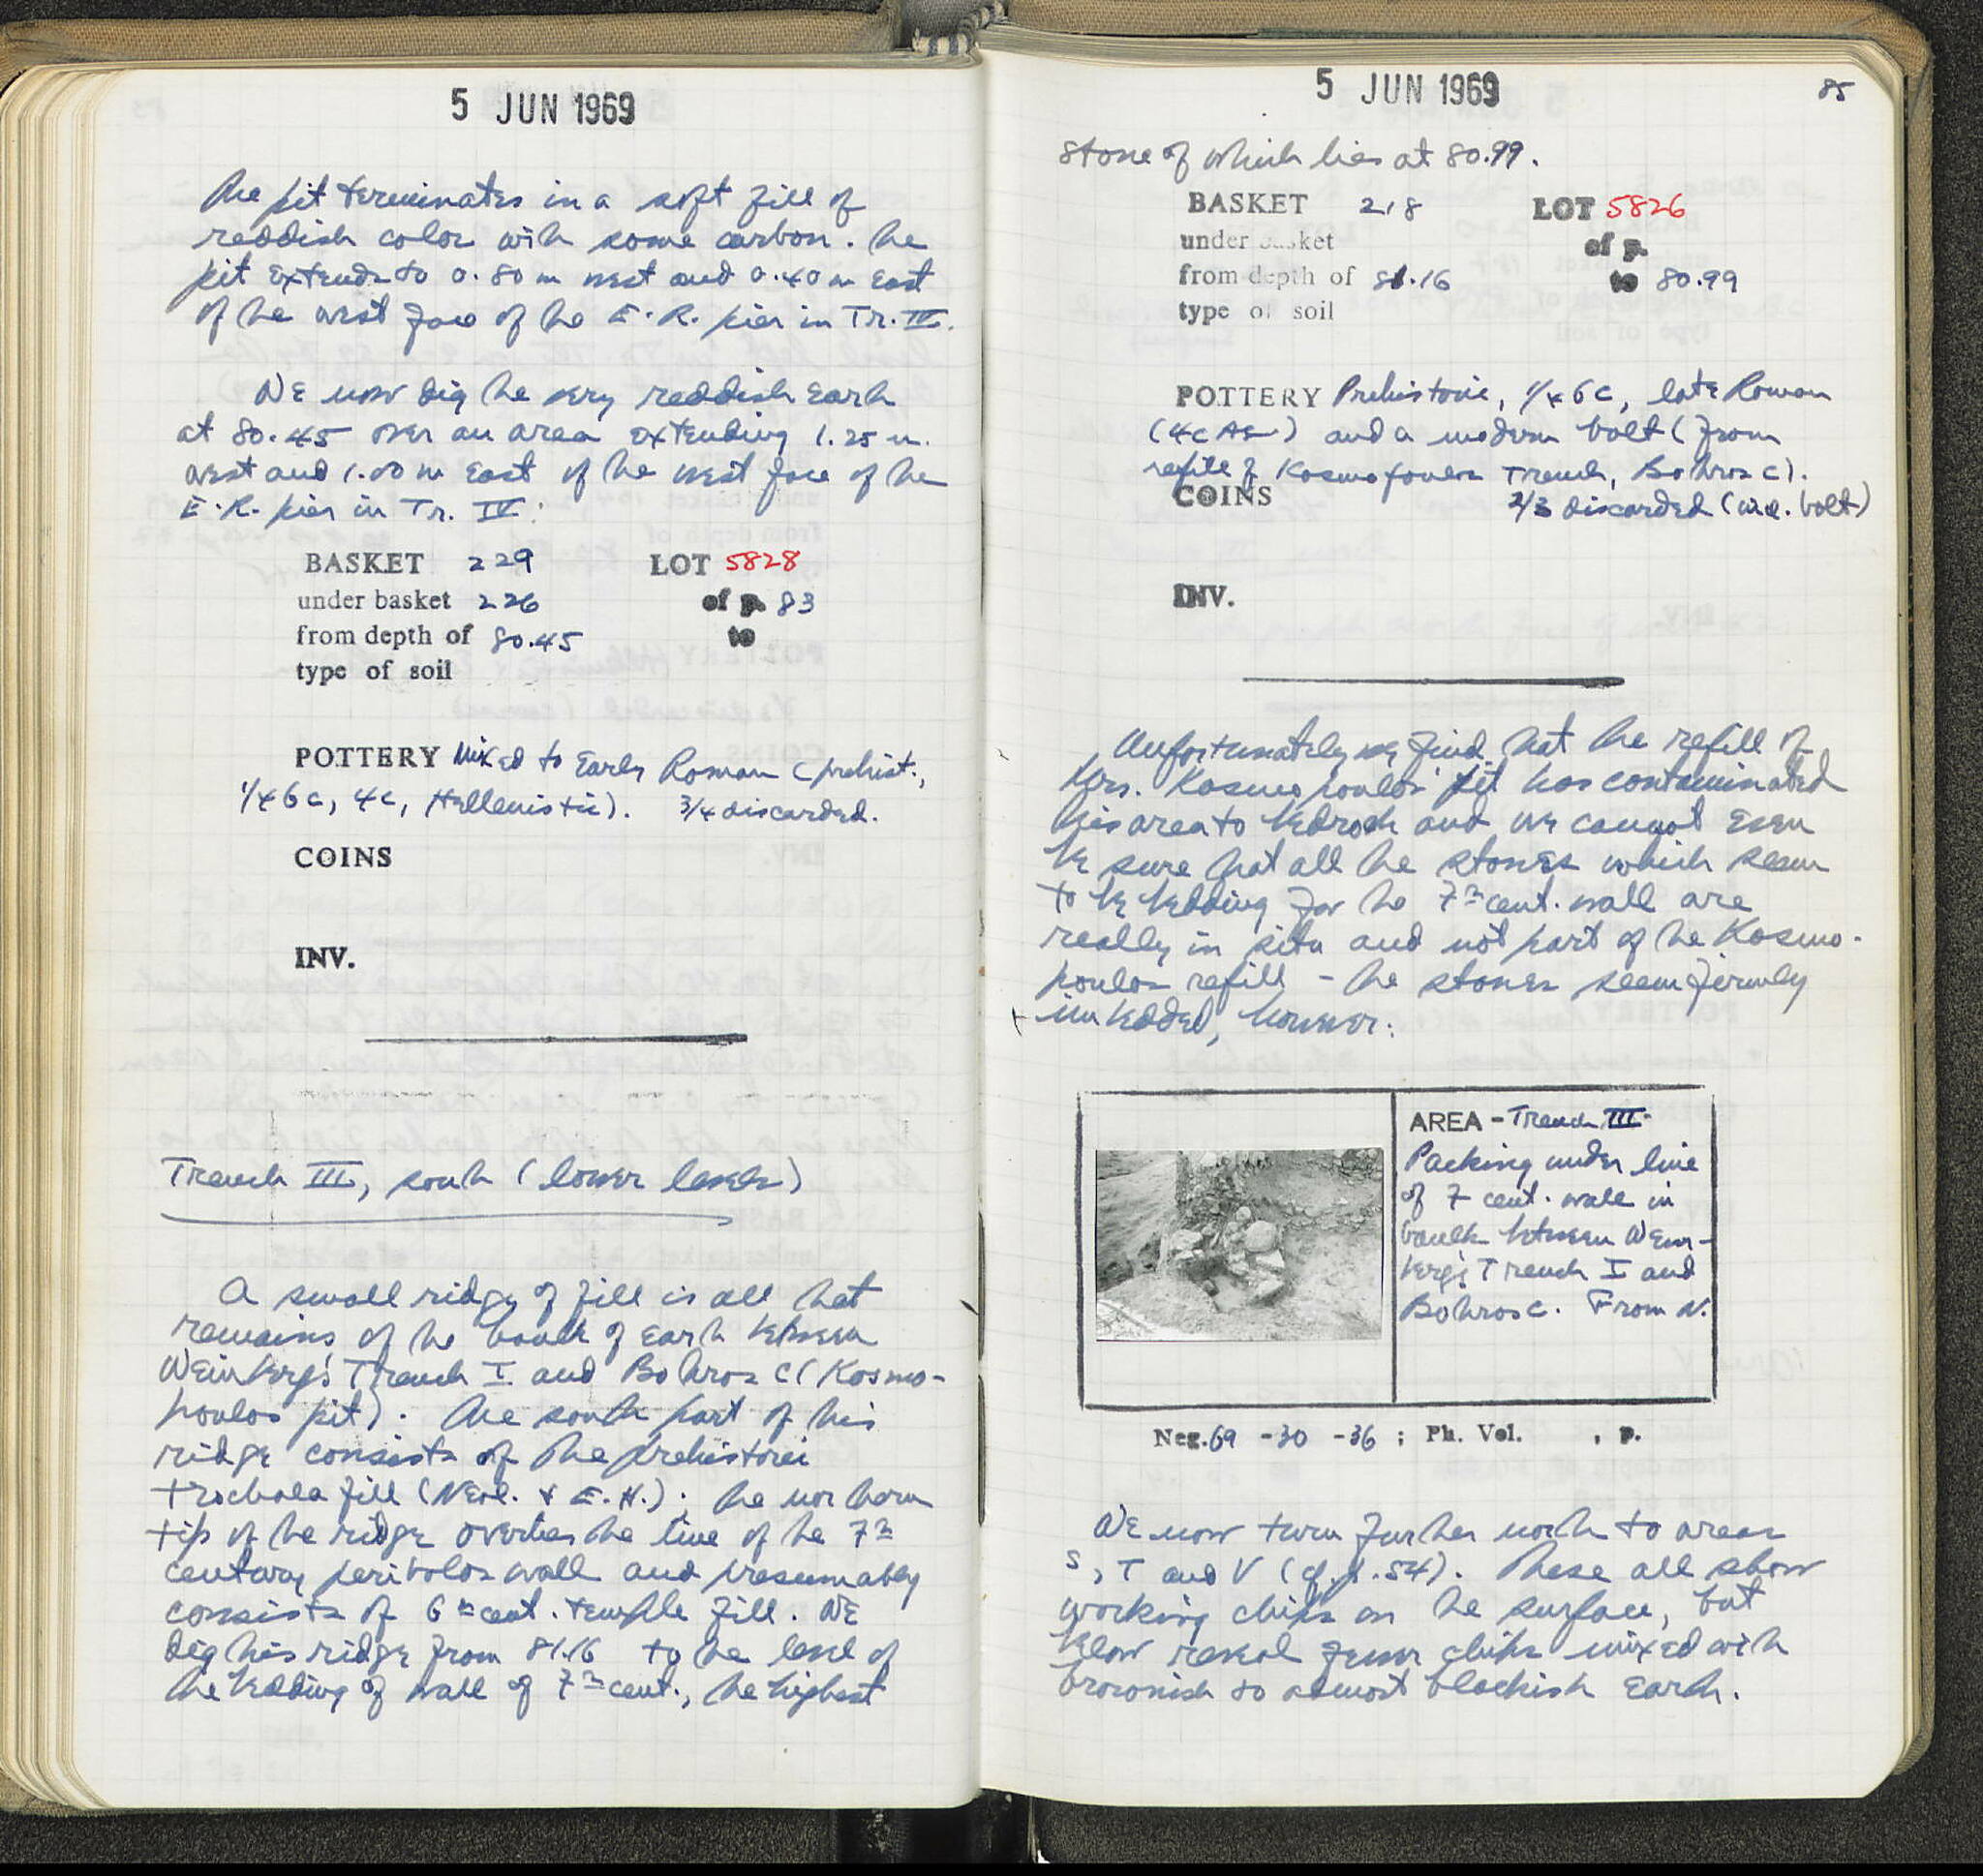 5 JUN 1969
The pit terminates in a soft fill of
reddish color with some carbon. The
pit extends to 0.80 m west and 0.40 m East
of the west face of the E.R. pier in Tr. IV.
WE now dig the very reddish Earth
at 80.45 over an area extending 1.25 m.
west and 1.00 m East of the west face of the
E.R. pier in Tr. IV:
BASKET 229 LOT 5828
under basket 226 of p. 83
from depth of 80.45 to
type of soil
POTTERY Mixed to Early Roman (prehist.,
1/4 6c, 4c, Hellenistic). 3/4 discarded.
COINS
INV.
Trench III, south (lower levels)
A small ridge of fill is all that
remains of the baulk of Earth between
Weinberg's Trench I and Bothros C (Kosmo-
poulos pit). The south part of this
ridge consists of the prehistoric
trochala fill (Neol. + E.H.); the northern
tip of the ridge overlies the line of the 7th
century peribolos wall and presumably
consists of 6th cent. temple fill. WE
dig this ridge from 81.16 to the level of
the bedding of wall of 7th cent., the highest
5 JUN 1969
85
stone of which lies at 80.99.
BASKET 218 LOT 5826
under basket of p.
from depth of 81.16 to 80.99
type of soil
POTTERY Prehistoric, 1/4 6c, late Roman
(4c AD) and a modern bolt (from
refill of Kosmopoulos Trench, Bothros C).
COINS 2/3 discarded (inc. bolt)
INV.
Unfortunately we find that the refill of
Mrs. Kosmopoulos' pit has contaminated
this area to bedrock and we cannot even
be sure that all the stones which seem
to be bedding for the 7th cent. wall are
really in situ and not part of the Kosmo-
poulos refill - the stones seem firmly
imbedded, however:
AREA - Trench III-
Packing under line
of 7 cent. wall in
baulk between Wein-
berg's Trench I and
Bothros C. From N.
Neg. 69 -30 -36 ; Ph. Vol. , p.
WE now turn further north to areas
S, T and V (cf. p. 54). These all show
working chips on the surface, but
below reveal fewer chips mixed with
brownish to almost blackish Earth.